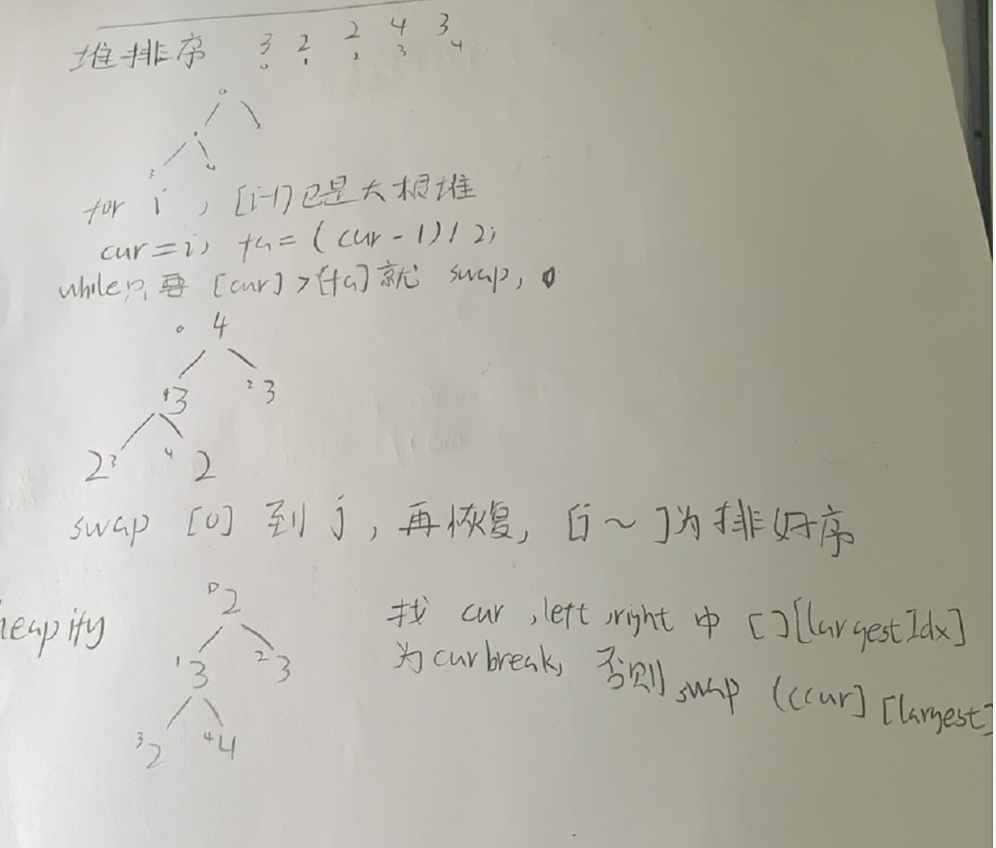 堆排序 3 2 2 4 3
0 1 2 3 4
0
1 2
3 4
for i , [i-1] 已是大根堆
cur = i, fa = (cur - 1) / 2;
while 只要 [cur] > [fa] 就 swap,
0 4
1 3 2 3
2 3 4 2
swap [0] 到 j , 再恢复, [j ~ ] 为排好序
heapify 0 2
1 3 2 3
3 2 4 4
找 cur , left , right 中 [ ] [largestIdx]
为 cur break, 否则 swap ([cur] [largest]